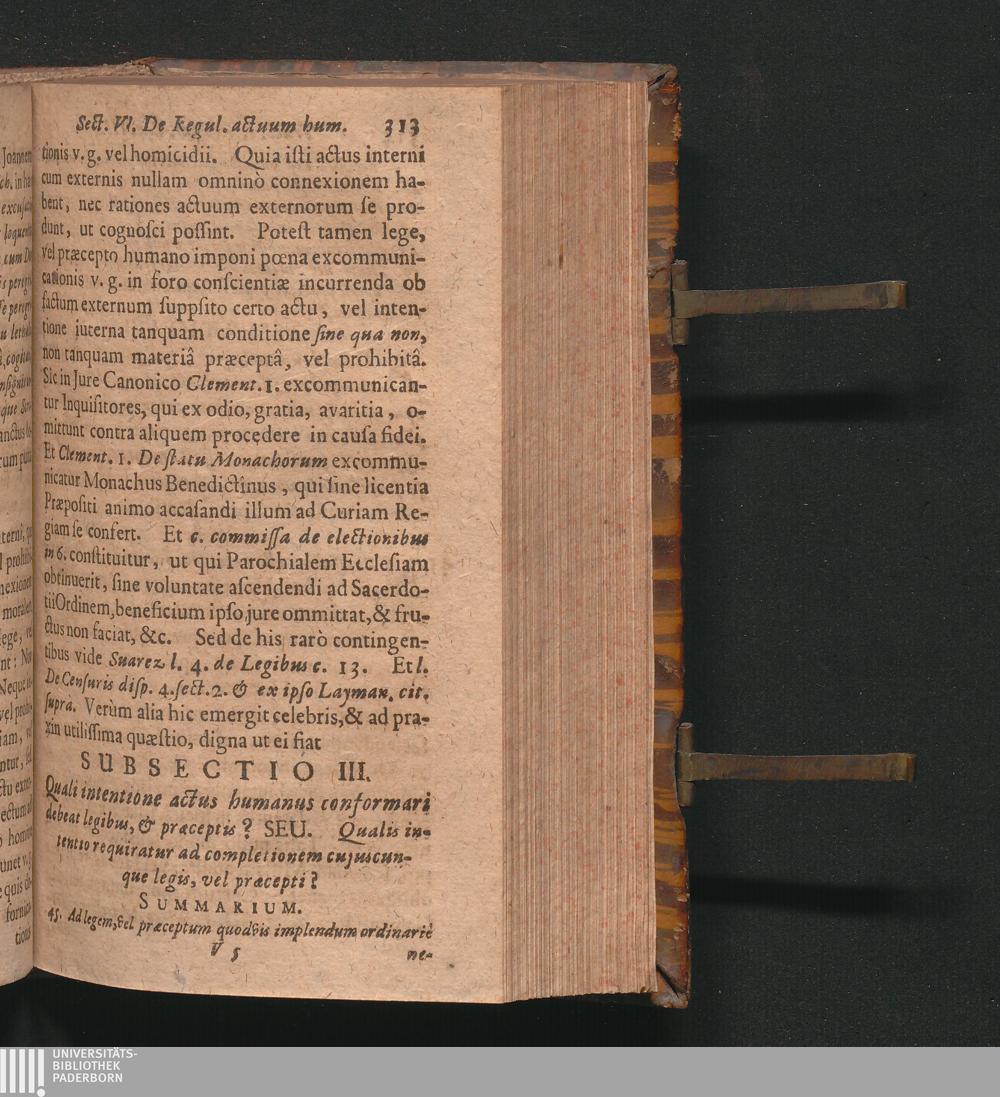 Sect. VI. De Regul. actuum hum. 313
tionis v. g. vel homicidii. Quia iſti actus interni
cum externis nullam omninò connexionem ha-
bent, nec rationes actuum externorum ſe pro-
dunt, ut cognoſci poſſint. Poteſt tamen lege,
vel præcepto humano imponi pœna excommuni-
cationis v. g. in foro conſcientiæ incurrenda ob
factum externum ſuppſito certo actu, vel inten-
tione iuterna tanquam conditione ſine qua non,
non tanquam materiâ præceptâ, vel prohibitâ.
Sic in Jure Canonico Clement. 1. excommunican-
tur Inquiſitores, qui ex odio, gratia, avaritia, o-
mittunt contra aliquem procedere in cauſa fidei.
Et Clement. 1. De ſtatu Monachorum excommu-
nicatur Monachus Benedictinus, qui ſine licentia
Præpoſiti animo accaſandi illum ad Curiam Re-
giam ſe confert. Et c. commiſſa de electionibus
in 6. conſtituitur, ut qui Parochialem Eccleſiam
obtinuerit, ſine voluntate aſcendendi ad Sacerdo-
tii Ordinem, beneficium ipſo jure ommittat, & fru-
ctus non faciat, &c. Sed de his rarò contingen-
tibus vide Suarez l. 4. de Legibus c. 13. Et l.
De Cenſuris diſp. 4. ſect. 2. & ex ipſo Layman. cit.
ſupra. Verùm alia hic emergit celebris, & ad pra-
xin utiliſſima quæſtio, digna ut ei fiat
SUBSECTIO III.
Quali intentione actus humanus conformari
debeat legibus, & præceptis? SEU. Qualis in-
tentio requiratur ad completionem cujuscun-
que legis, vel præcepti?
SUMMARIUM.
45. Ad legem, vel præceptum quodvis implendum ordinariè
V 5 ne-
UNIVERSITÄTS-
BIBLIOTHEK
PADERBORN